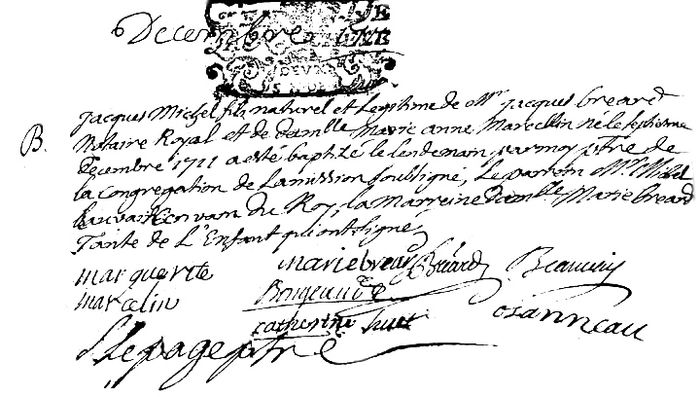 Decembre
DEVX
S
B.
Jacques Michel fils naturel et Legitime de Mr. Jacques breard
Notaire Royal et de damlle Marie anne Marcellin né le septiesme
decembre 1711 a esté baptizé le lendemain par moy ptre de
la congregation de Lamission soubsigné, Le parrain Mr. Michel
du Roy, la Marreine damlle Marie breard
Tante de L'Enfant qui ont signé
marguerite mariebreard Bréard Beauvais
marcelin
catherine huet oзanneau
Lepage ptre